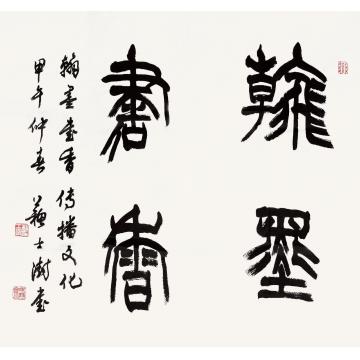 翰墨
書香
翰墨書香傳播文化
甲午仲春 蘇士澍書